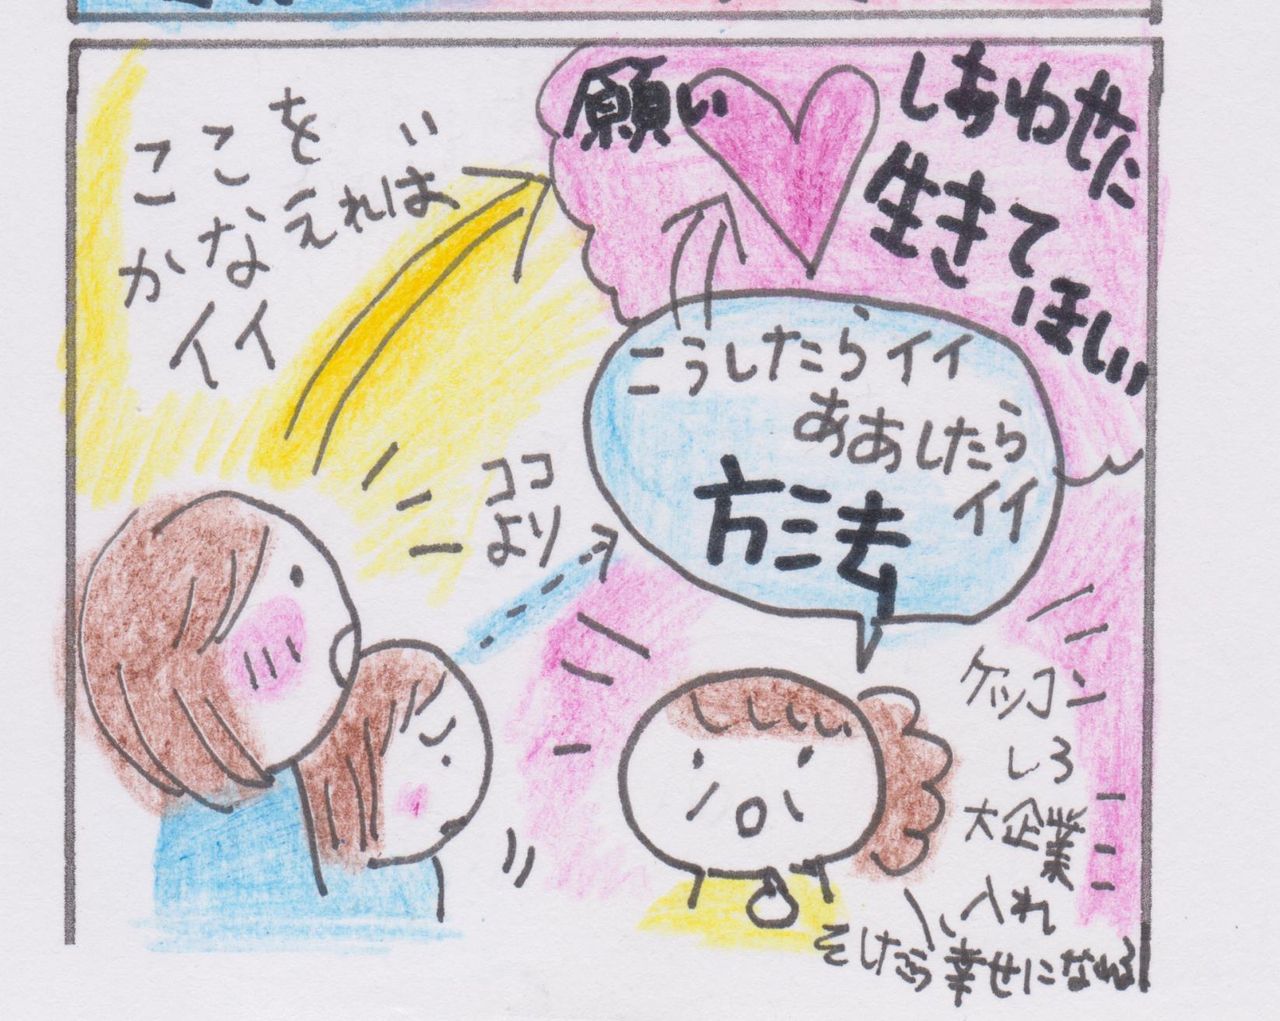 ここを
かなえれば
イイ
願い
しあわせに
生きて
ほしい
こうしたらイイ
ああしたら
イイ
方法
ココ
より
ケッコン
しろ
大企業
入れ
そしたら幸せになれる